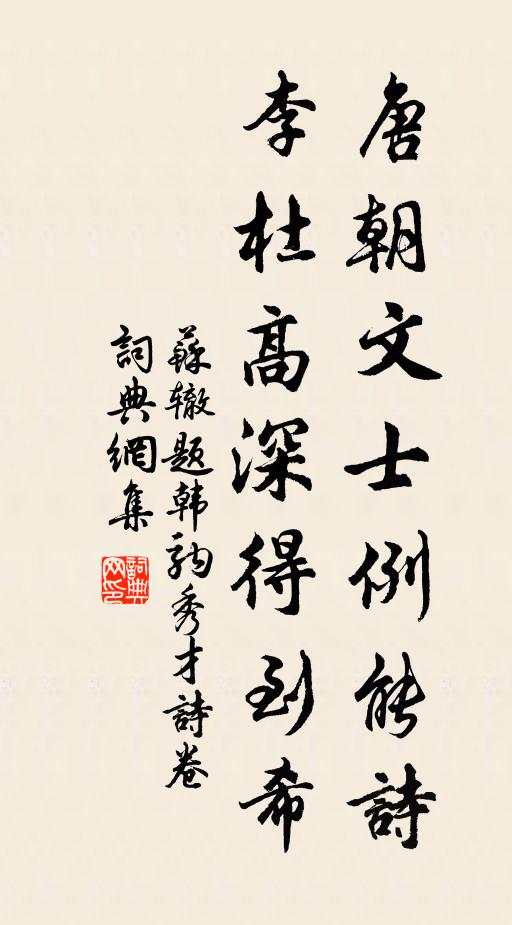 唐朝文士例能詩
李杜高深得到希
蘇辙题韩驹秀才詩卷
詞典網集
詞典网印